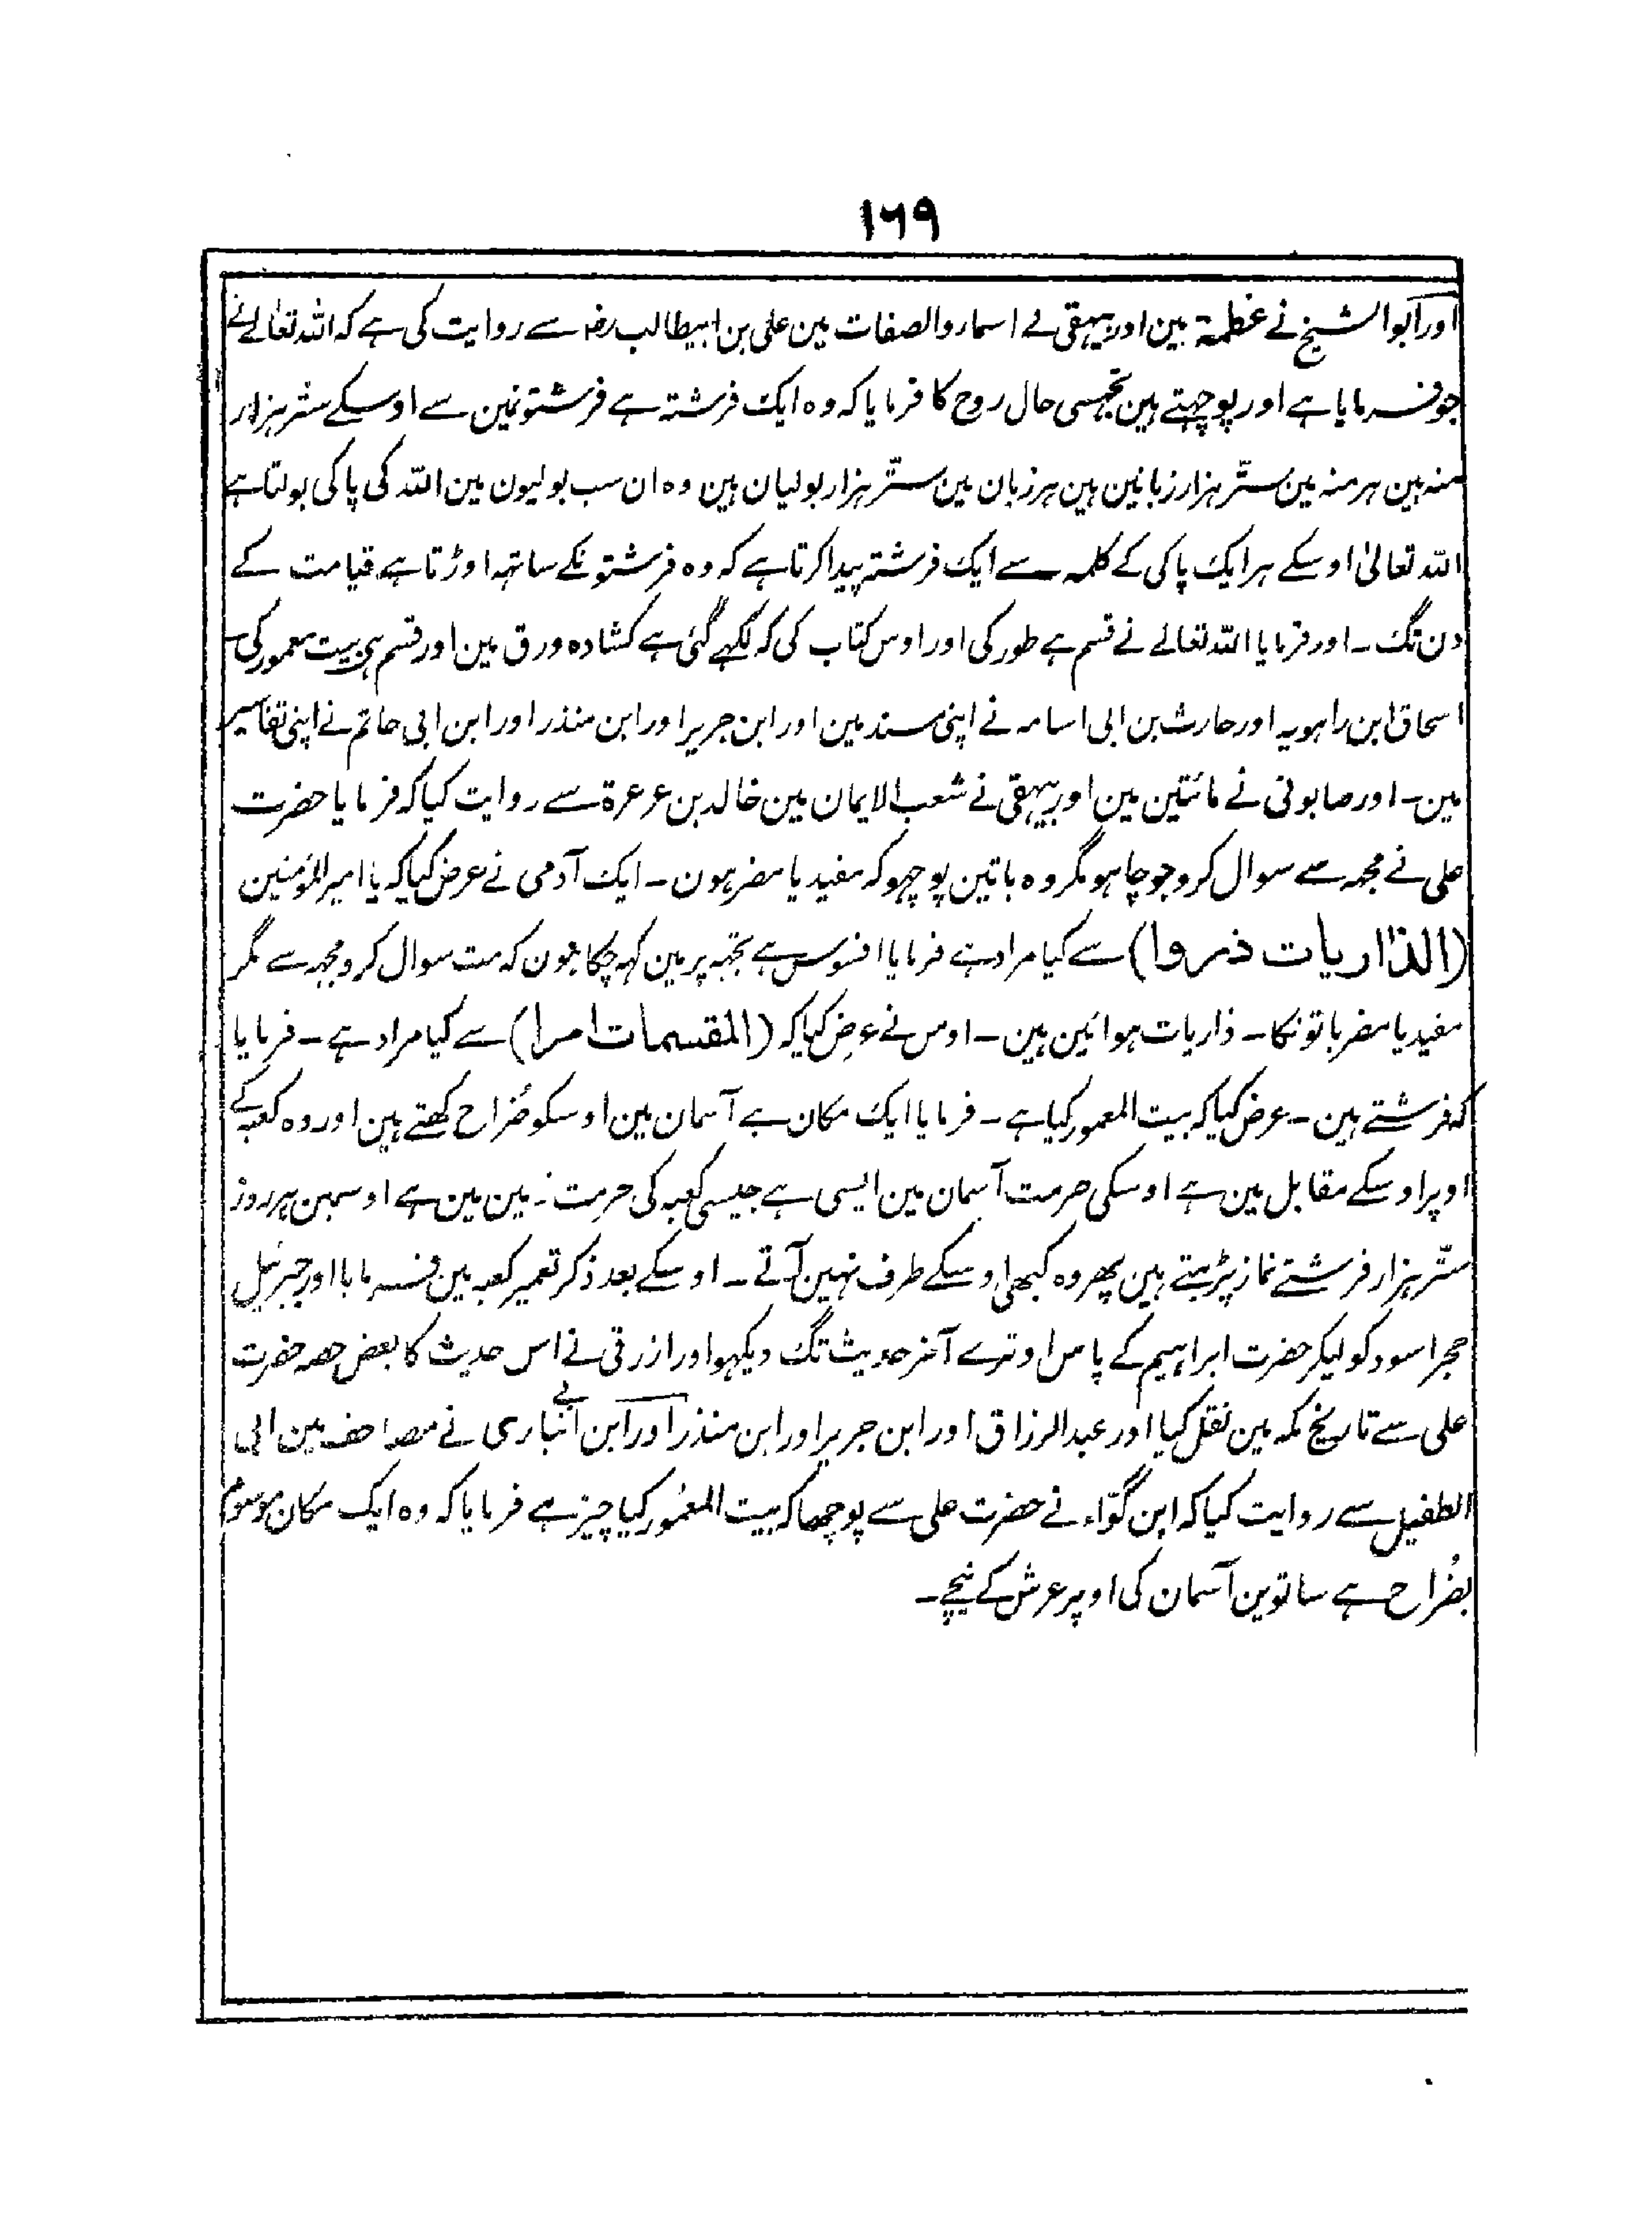 ۱۶۹
اور ابو الشیخ نے عظمۃ مین اور بیہقی نے اسماء والصفات مین علی بن ابیطالب رضہ سے روایت کی ہے کہ اللہ تعالےٰ نے
جو فرمایا ہے اور پوچہتے ہین تجہسی حال روح کا فرمایا کہ وہ ایک فرشتہ ہے فرشتونمین سے اوسکے ستر ہزار
منہ ہین ہر منہ مین ستّر ہزار زبانین ہین ہر زبان مین ستّر ہزار بولیان ہین وہ ان سب بولیون مین اللہ کی پاکی بولتا ہے
اللہ تعالیٰ اوسکے ہر ایک پاکی کے کلمہ سے ایک فرشتہ پیدا کرتا ہے کہ وہ فرشتونکے ساتہہ اوڑتا ہے قیامت کے
دن تک ۔ اور فرمایا اللہ تعالے نے قسم ہے طور کی اور اوس کتاب کی کہ لکہے گئی ہے کشادہ ورق مین اور قسم ہی بیت معمور کی
اسحاق ابن راہویہ اور حارث بن ابی اسامہ نے اپنی مسند مین اور ابن جریر اور ابن منذر اور ابن ابی حاتم نے اپنی تفاسیر
مین ۔ اور صابونی نے مائتین مین اور بیہقی نے شعب الایمان مین خالد بن عرعرۃ سے روایت کیا کہ فرمایا حضرت
علی نے مجہہ سے سوال کرو جو چاہو مگر وہ باتین پوچہو کہ مفید یا مضر ہون ۔ ایک آدمی نے عرض کیا کہ یا امیر المؤمنین
(الذّاریات ذروا) سے کیا مراد ہے فرمایا افسوس ہے تجہہ پر مین کہہ چکا ہون کہ مت سوال کرو مجہہ سے مگر
مفید یا مضر باتونکا ۔ ذاریات ہوائین ہین ۔ اوس نے عرض کیا کہ (المقسمات امرا) سے کیا مراد ہے ۔ فرمایا
کہ فرشتے ہین ۔ عرض کیا کہ بیت المعمور کیا ہے ۔ فرمایا ایک مکان ہے آسمان مین اوسکو ضُراح کہتے ہین اور وہ کعبہ کے
اوپر اوسکے مقابل مین ہے اوسکی حرمت آسمان مین ایسی ہے جیسی کعبہ کی حرمت زمین مین ہے اوسمین ہر روز
ستّر ہزار فرشتے نماز پڑہتے ہین پھر وہ کبھی اوسکے طرف نہین آتے ۔ اوسکے بعد ذکر تعمیر کعبہ مین فرمایا اور جبرئیل
حجر اسود کو لیکر حضرت ابراہیم کے پاس اوترے آخر حدیث تک دیکہو اور ازرقی نے اس حدیث کا بعض حصہ حضرت
علی سے تاریخ مکہ مین نقل کیا اور عبد الرزاق اور ابن جریر اور ابن منذر اور ابن انباری نے مصاحف مین ابی
الطفیل سے روایت کیا کہ ابن کوّاء نے حضرت علی سے پوچھا کہ بیت المعمُور کیا چیز ہے فرمایا کہ وہ ایک مکان موسوم
بضُراح ہے ساتوین آسمان کی اوپر عرش کے نیچے ۔